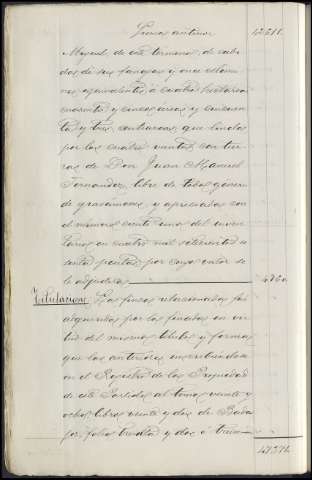 Suma anterior 42511.
Miguel, de este termino, de cabi-
da de seis fanegas y once celemi-
nes equivalentes á cuatro hectareas
cuarenta y cinco áreas y cincuen-
ta y tres centiareas, que linda
por los cuatro vientos con tier-
ras de Don Juan Manuel
Fernandez, libre de todo genero
de gravámenes, y apreciada con
el número ciento uno del inven-
tario en cuatro mil setecientas se-
senta pesetas por cuyo valor se
le adjudica 4760.
Titulacion: Las fincas relacionadas fue
adquiridas por los finados en vir-
tud del mismo titulo y forma
que las anteriores inscribiendose
en el Registro de la Propiedad
de este Partido al tomo veinte y
ocho libro veinte y dos de
folio treinta y dos á
47271.